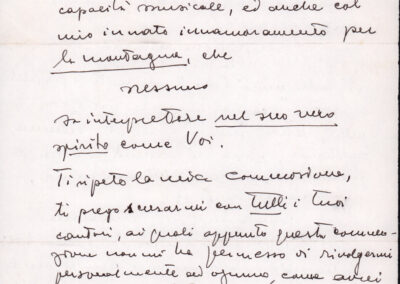 capacità musicale, ed anche col
mio innato innamoramento per
la montagna, che
nessuno
sa interpretare nel suo vero
spirito come Voi.
Ti ripeto la mia commozione,
ti prego scusarmi con tutti i tuoi
cantori, ai quali appunto questa commo-
zione non mi ha permesso di rivolgermi
personalmente ad ognuno, come avrei